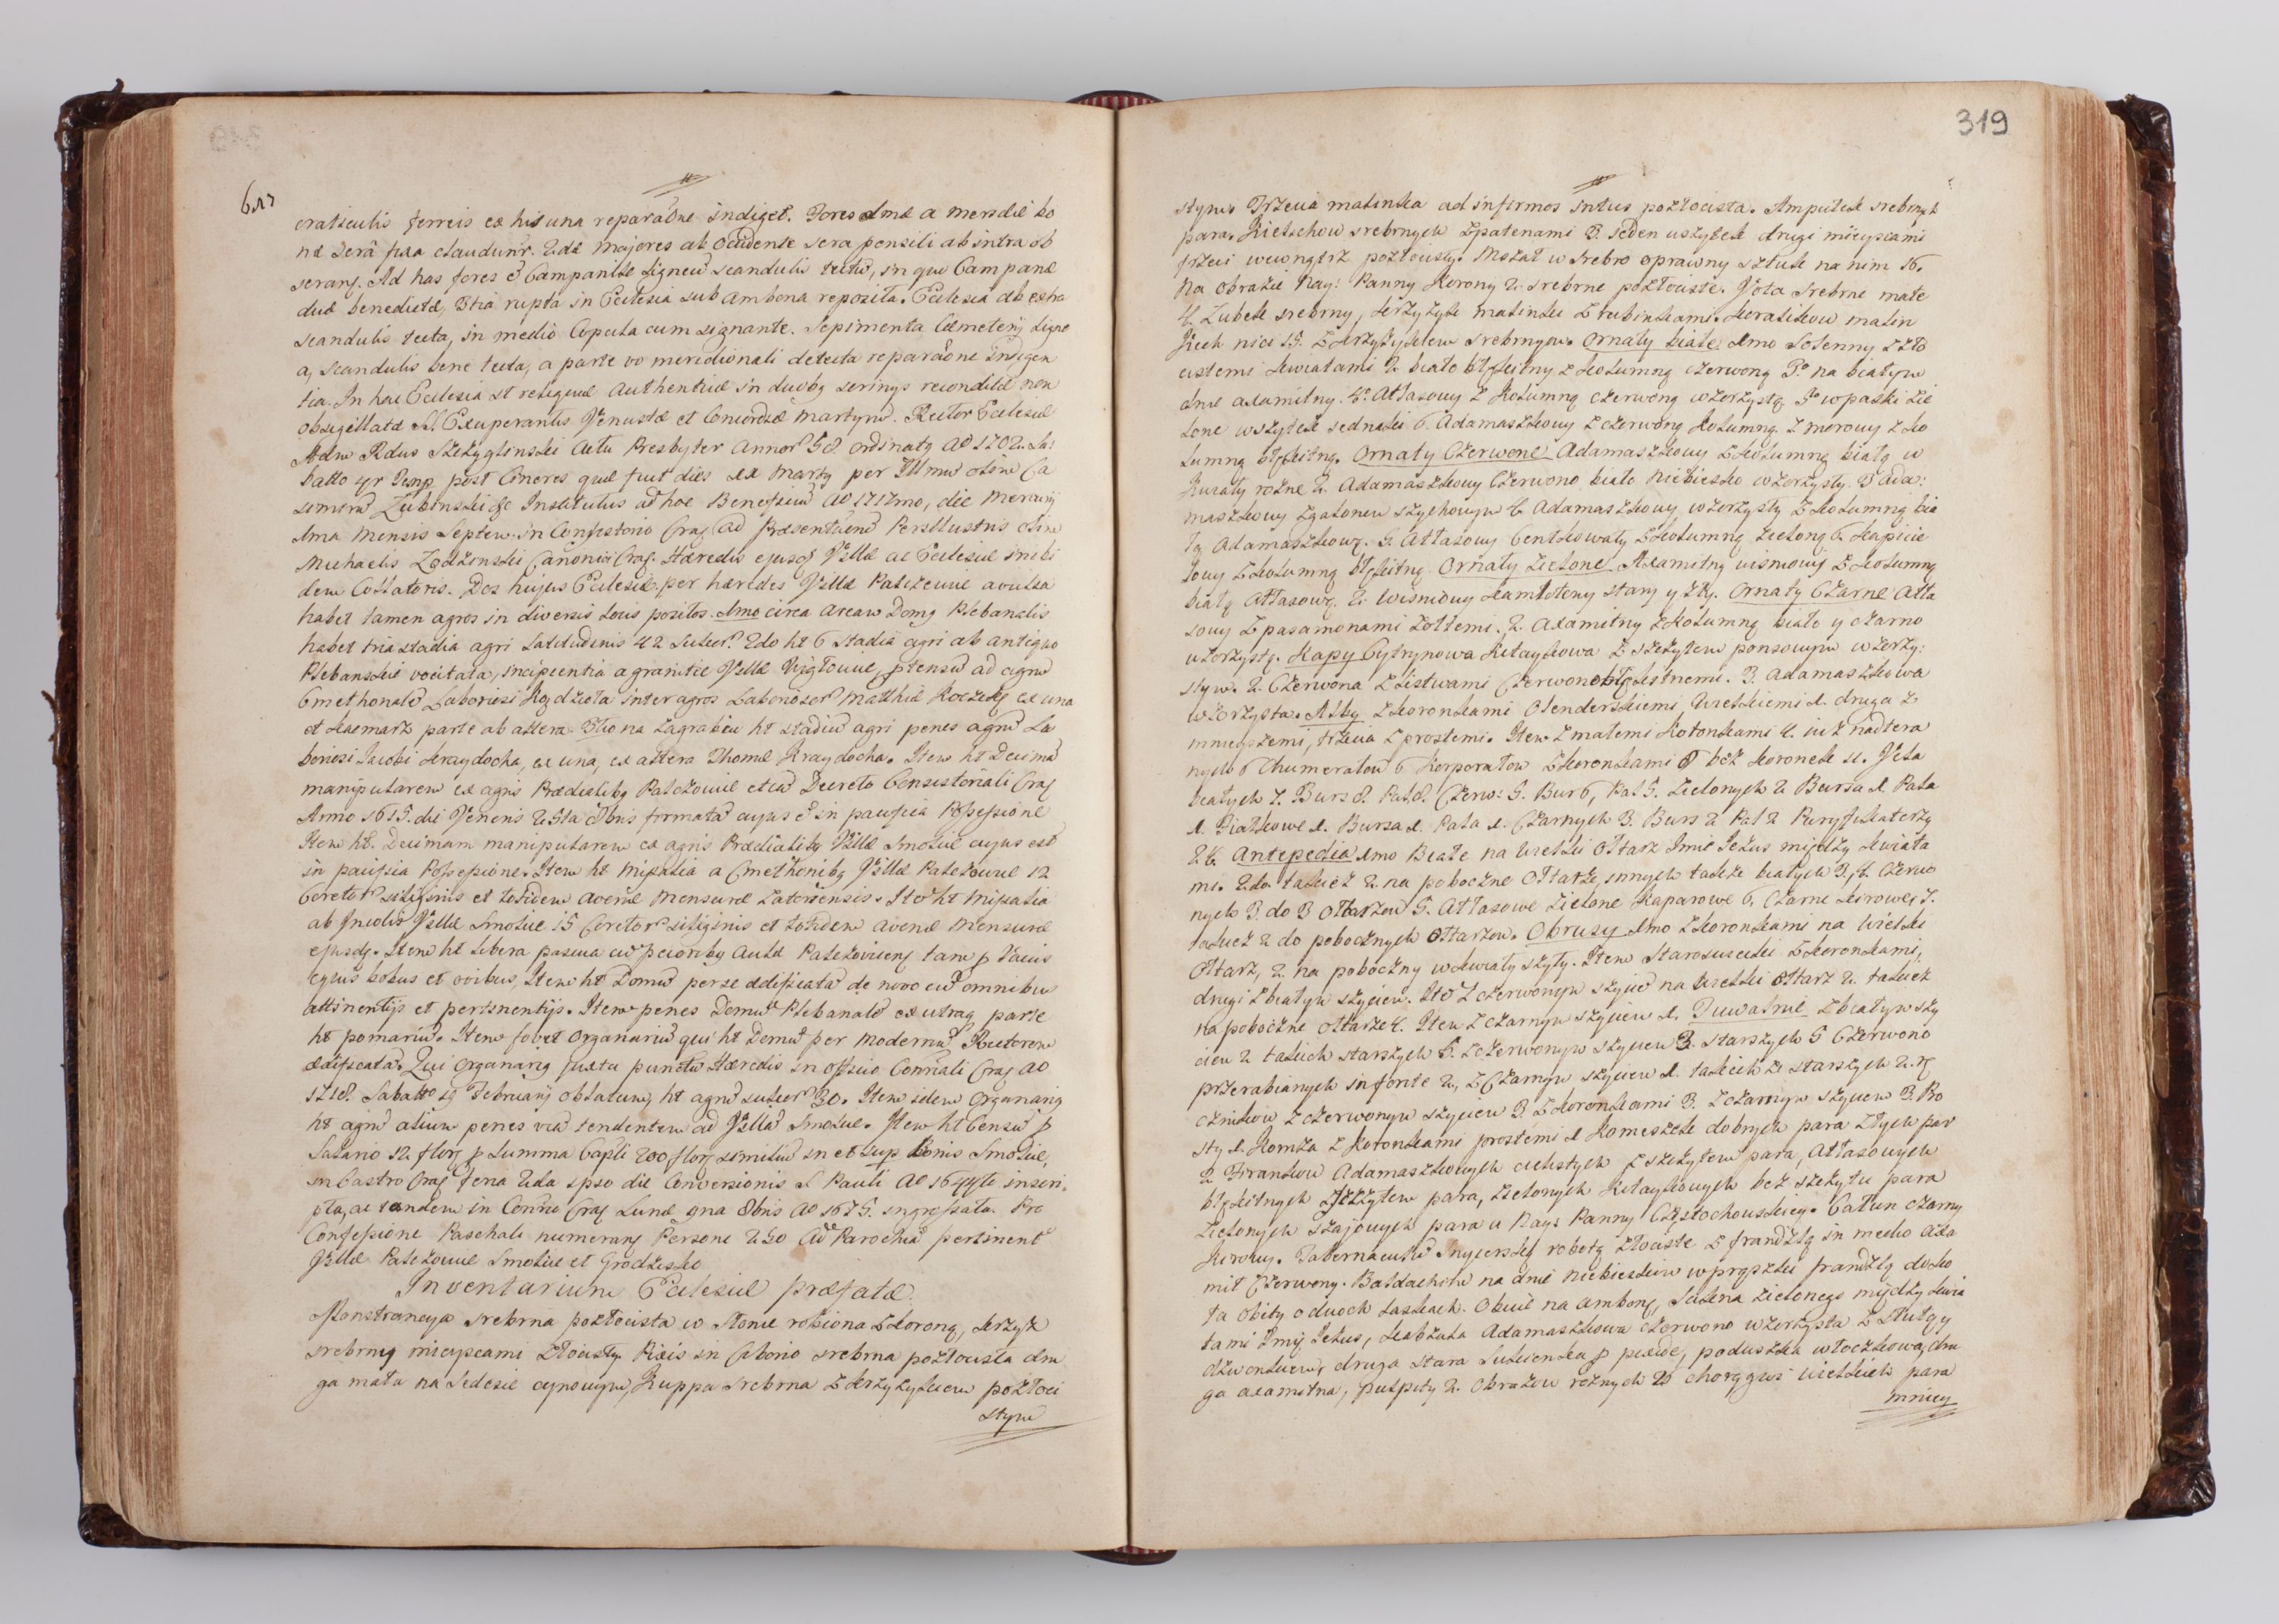 319
craticulis ferreis ex his una reparaone indiget. Fores 1mæ a meridie bo
næ Serâ fixa clauduntr. 2dæ majores ab Occidente sera pensili ab intra ob
serant. Ad has fores e Campanile Ligneu scandulis tectu, in quo Campanæ
duæ benedictæ, 3tia rupta in Ecclesia sub ambona reposita. Ecclesia ab extra
scandulis tecta, in medio Copula cum signante. Sepimenta Cæmeterij Ligne
a, scandulis bene tecta, a parte vo meridionali detecta reparaone indigen
tia. In hac Ecclesia st reliquiæ Authenticæ in duobq scrinijs reconditæ non
obsigillatæ SS. Exuperantis Venustæ et Concordiæ Martyru. Rector Ecclesiæ
Adm Rdus Szczygliński Actu Presbyter Annor 58 ordinatq Ao 1702. Sa:
batto qr Temp. post Cineres quæ fuit dies 11 Martij per Illmu olim Ca
simiru Łubinski Institutus ad hoc Beneficiu Ao 1717mo, die Mercurij
1ma Mensis Septem. in Consistorio Crac. ad Præsentaonem Perillustris olim
Michaelis Canonici Crac. Hæredis ejusdq Villæ ac Ecclesiæ inibi
dem Collatoris. Dos hujus Ecclesiæ, per hæredes Villæ Palczowice avulsa
habet tamen agros in diversis Locis positos. 1mo circa aream Domq Plebanalis
habet tria stadia agri Latitudinis 42 sulcor. 2do ht 6 stadia agri ab antiquo
Plebanskie vocitata, incipientia a granitie Villæ ptensu ad agru
Cmethonale Laboriosi inter agros Laboriosor Matthiæ ex una
et parte ab altera. 3tio na Zagrabiu ht stadiu agri penes agru La
boriosi Jacobi Kraydocha, ex una, ex altera Thomæ Kraydocha. Item ht Decima
manipularem ex agris Prædialibq Palczowice etia Decreto Consistoriali Crac
Anno 1615. die Veneris 25ta 8bris firmata cujus e in pacifica Possessione
Item ht. Decimam manipularem ex agris Prædialibq Villæ Smolice cujus est
in pacifica Possessione. Item ht Missalia a Cmethonibq Villæ Palczowice 12
Coretor siliginis et totidem avenæ Mensuræ Zatoriensis. Ite ht Missalia
ab Incolis Villæ Smolice 15 Coretor siliginis et totidem avenæ Mensuræ
ejusdq. Item ht libera pascua cu pecoribq Aulæ Palczoviceng tam p Vaccis
equis bobus et ovibus, Item ht Domu per se ædificata de novo cu omnibus
attinentijs et pertinentijs. Item penes Domu Plebanale ex utraq parte
ht pomariu. Item fovet Organariu qui ht Domu per modernu Rectorem
ædificata. Qui Organariq juxta punctu Hæredis in officio Consiali Crac Ao
1718. Sabatto 19 Februarij oblatum, ht agru sulcor 30. Item idem Organariq
ht agru alium penes via tendentem ad Villa Smolice. Item ht Censu p
Salario 12 flor p Summa Capli 200 flor similiu in et sup bonis Smolice,
in Castro Crac feria 2da ipso die Conversionis S Pauli Ao 1644to inscri,
pta, ac tandem in Conrio Crac Lunæ 9na 8bris Ao 1675. ingrossata. Pro
Confessione Paschali numerang Personæ 250 Ad Parochia pertinent
Villæ Palczowice Smolice et Grodzisko
Inventarium Ecclesiæ præfatæ.
Monstrancya srebrna pozłocista w słonie robiona z koroną, krzyż
srebrny mieyscami złocisty. Pixis in Cibonio srebrna pozłocista dru
ga mała na sedesie cynowym, Kuppa srebrna z krzyżykiem pozłoci
stym
stym. Trzecia malinka ad infirmos intus pozłocista. Ampułek srebrnych
para. Kielichow srebrnych z patenami 3. Jeden wszytek drugi mieyscami
trzeci wewnątrz pozłocisty. Mszał w srebro oprawny sztuk na nim 16.
Na obrazie Nay: Panny Korony 2. srebrne pozłociste. Vota srebrne małe
4. Ząbek srebrny, krzyżyk malinki z rubinkami. Koralikow malin
kich nici 15. z krzyżykiem srebrnym. Ornaty białe 1mo Solenny z zło
cistemi kwiatami 2. biało błękitny z kolumną czerwoną 3o na białym
dnie axamitny. 4o Atłasowy z kolumną czerwoną wzorzystą 5o w paski zie
lone wszytek jednaki 6. Adamaszkowy z czerwoną kolumną. 7 morowy z ko
lumną błękitną. Ornaty Czerwone Adamaszkowy z kolumną białą w
kwiaty rożne 2. Adamaszkowy Czerwono biało niebiesko wzorzysty. 3 Ada:
maszkowy z galonem szychowym 4 Adamaszkowy wzorzysty z kolumną bia
łą Adamaszkową. 5. Atłasowy Centkowaty z kolumną zieloną 6.
z kolumną błękitną. Ornaty Zielone Axamitny wisniowy z kolumną
białą Atłasową. 2. wisniowy kamlotowy stary y zły. Ornaty Czarne Atła
sowy z pasamonami żołtemi. 2. Axamitny z kolumną biało y czarno
wzorzystą. Kapy Cytrynowa kitaykowa z szczytem ponsowym wzorzy:
stym. 2. Czerwona z listwami Czerwonobłękitnemi. 3. Adamaszkowa
wzorzysta. Alby z koronkami Olenderskiemi wielkiemi 1. druga z
mnieyszemi, trzecia z prostemi. Item z małemi koronkami 4. iuż nadtera
nych 6 Humerałow 6 Korporałow z koronkami 8 bez koronek 11. Vela
białych 7. Burs 8. Pal. 8. Czerw: 5. Bur 6, Pal 5. Zielonych 2 Bursa 1. Pala
1. Fiałkowe 1. Bursa 1. Pala 1. Czarnych 3. Burs 2 Pal 2 Puryfikaterzy
24. Antepedia 1mo Białe na Wielki Ołtarz Imie Jezus między kwiata
mi. 2do. takież 2. na poboczne Ołtarze, innych także białych 3, 4. Czerwo
nych 3. do 3 Ołtarzow 5. Atłasowe zielone kaparowe 6. Czarne kirowe, 7.
takież 2 do pobocznych Ołtarzow. Obrusy 1mo z koronkami na Wielki
Ołtarz, 2. na poboczny w kwiaty szyty. Item Staroswiecki z koronkami,
drugi z białym szyciem. Ite z czerwonym szyciem na wielki ołtarz 2. takież
na poboczne ołtarze 4. Item z czarnym szyciem 1. Tuwalnie z białym szy
ciem 2 takich starszych 5. z czerwonym szyciem 3. starszych 5 Czerwono
przerabianych in forte 2, z Czarnym szyciem 1. takich że starszych 2. Rę
cznikow z czerwonym szyciem 3. z koronkami 3. z czarnym szyciem 3. Pro
sty 1. Komża z koronkami prostemi 1 Komeszek dobrych para złych par
2 Firankow Adamaszkowych cielistych z szczytem para, Atłasowych
błękitnych z szczytem para, zielonych kitaykowych bez szczytu para
zielonych szajowych para u Nay: Panny Częstochowskiey. Całun czarny
kirowy. Tabernaculu snycerską robotą złociste z frandzlą in medio axa
mit Czerwony. Baldachim na dnie niebieskim w prążki frandzlą doko
ła obity o dwoch laskach. Obicie na ambonę, Suknia zielonego między kwia
tami Imię Jezus, kabzula Adamaszkowa czerwono wzorzysta z stułą y
dzwonkiem, druga stara Sukienka p pixide, poduszka włoczkowa, dru
ga axamitna, pulpity 2. Obrazow rożnych 20 chorągwi wielkich para
mniey